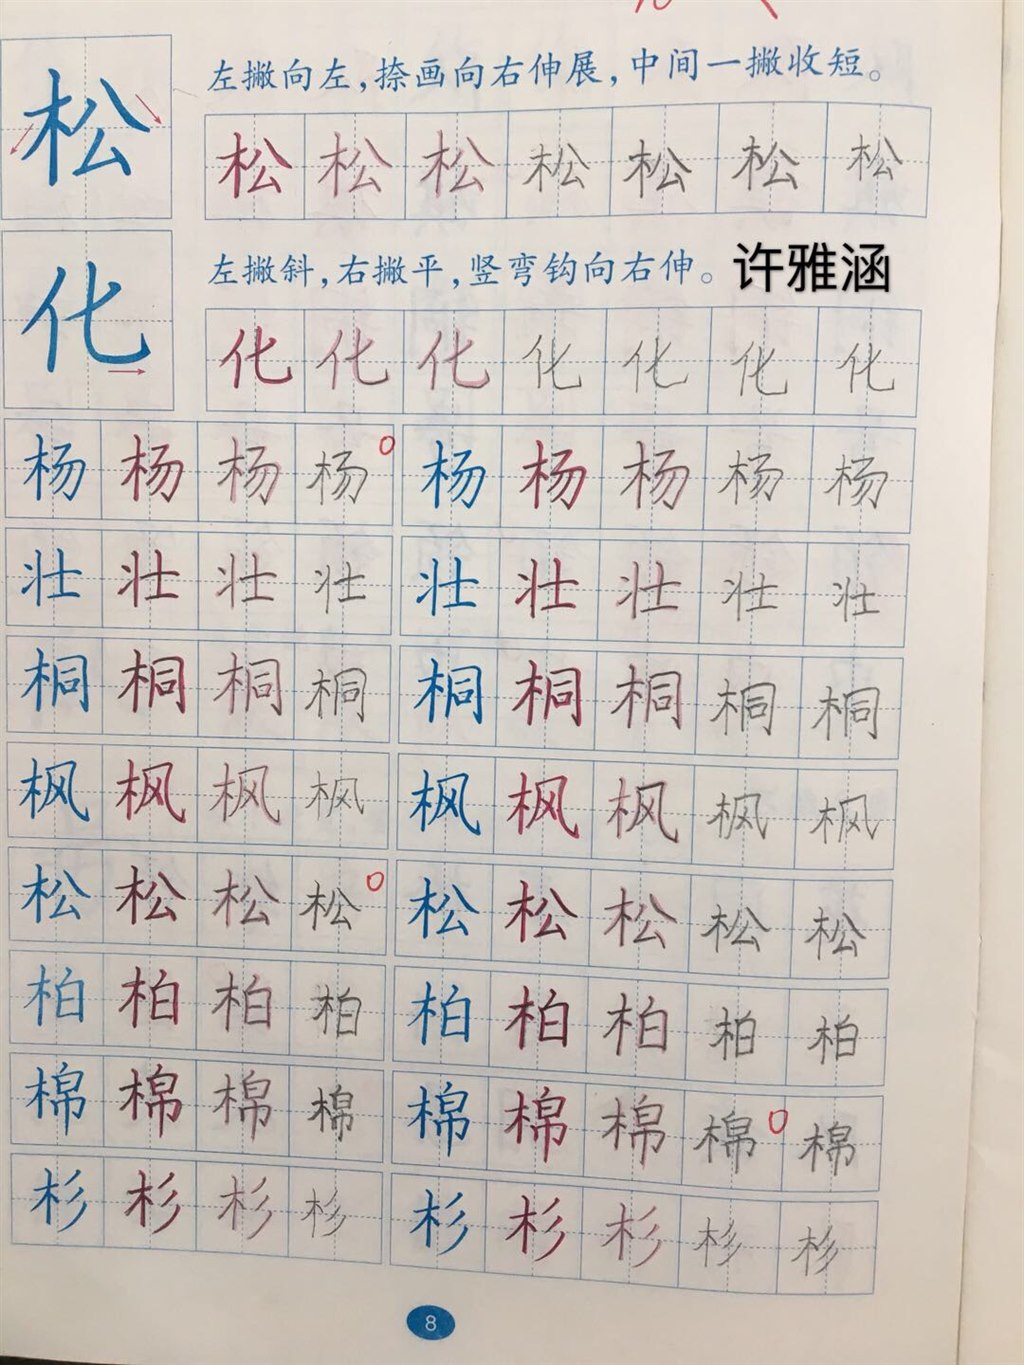 松
左撇向左,捺画向右伸展,中间一撇收短。
松松松松松松松
化
左撇斜,右撇平,竖弯钩向右伸。许雅涵
化化化化化化化
杨杨杨杨 杨杨杨杨杨
壮壮壮壮 壮壮壮壮壮
桐桐桐桐 桐桐桐桐桐
枫枫枫枫 枫枫枫枫枫
松松松松 松松松松松
柏柏柏柏 柏柏柏柏柏
棉棉棉棉 棉棉棉棉棉
杉杉杉杉 杉杉杉杉杉
8